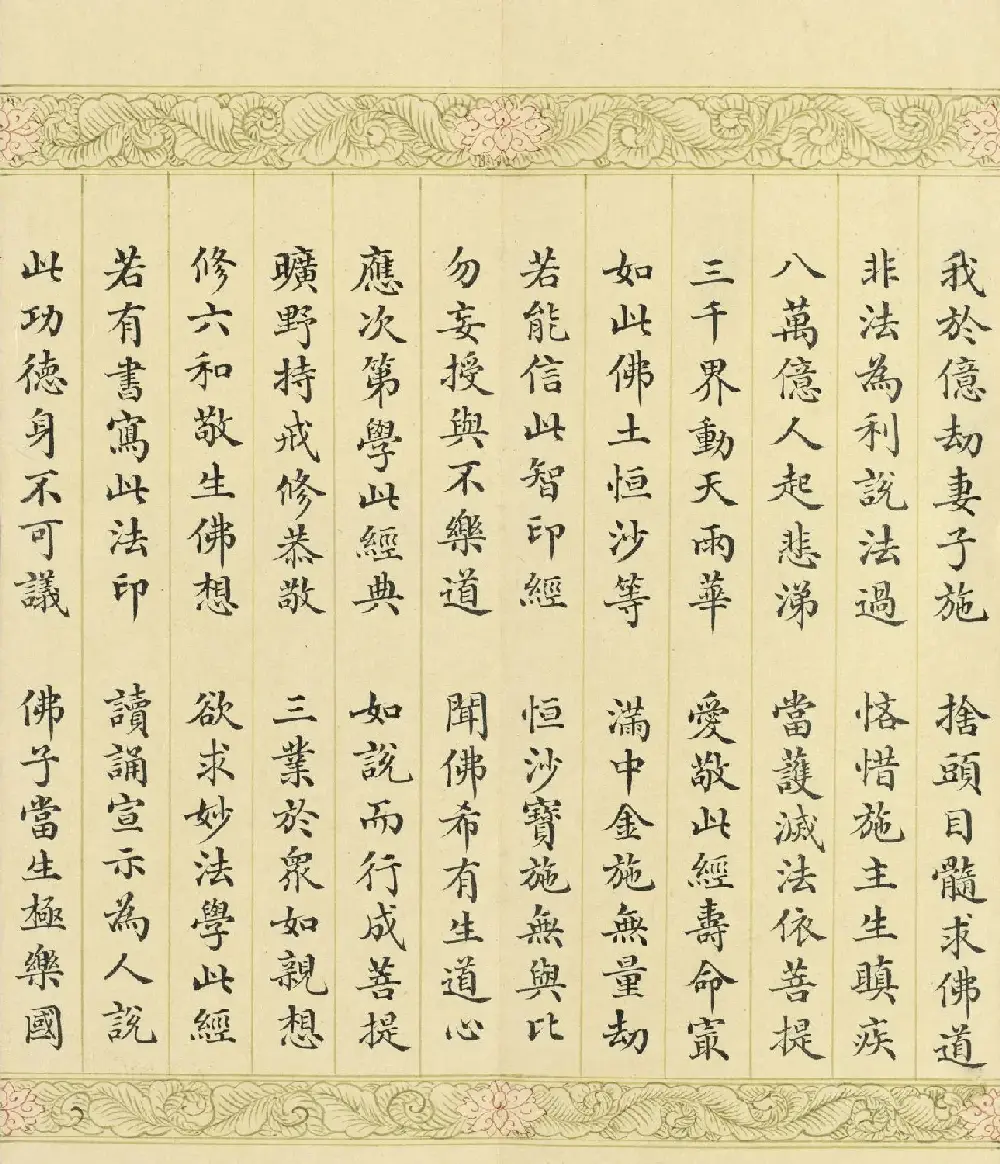 我於億劫妻子施 捨頭目髓求佛道
非法為利說法過 悋惜施主生瞋疾
八萬億人起悲涕 當護滅法依菩提
三千界動天雨華 愛敬此經壽命寂
如此佛土恒沙等 滿中金施無量劫
若能信此智印經 恒沙寶施無與比
勿妄授與不樂道 聞佛希有生道心
應次第學此經典 如說而行成菩提
曠野持戒修恭敬 三業於眾如親想
修六和敬生佛想 欲求妙法學此經
若有書寫此法印 讀誦宣示為人說
此功德身不可議 佛子當生極樂國